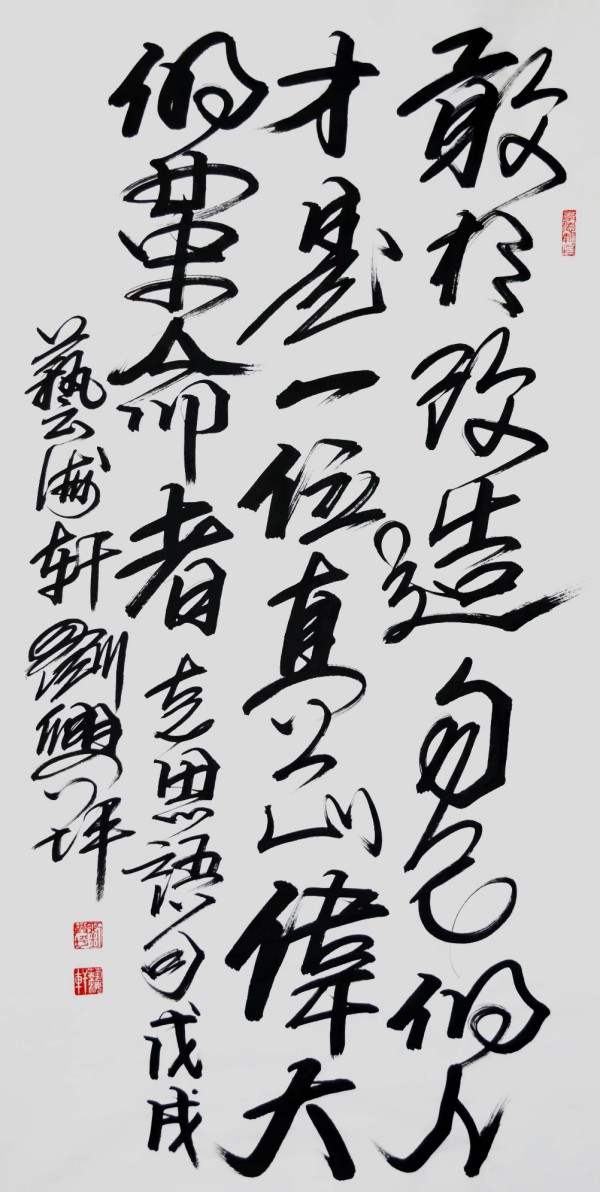 敢於改造自己的人
才是一位真正偉大
的革命者 克思語句 戊戌
藝海轩 劉興坪